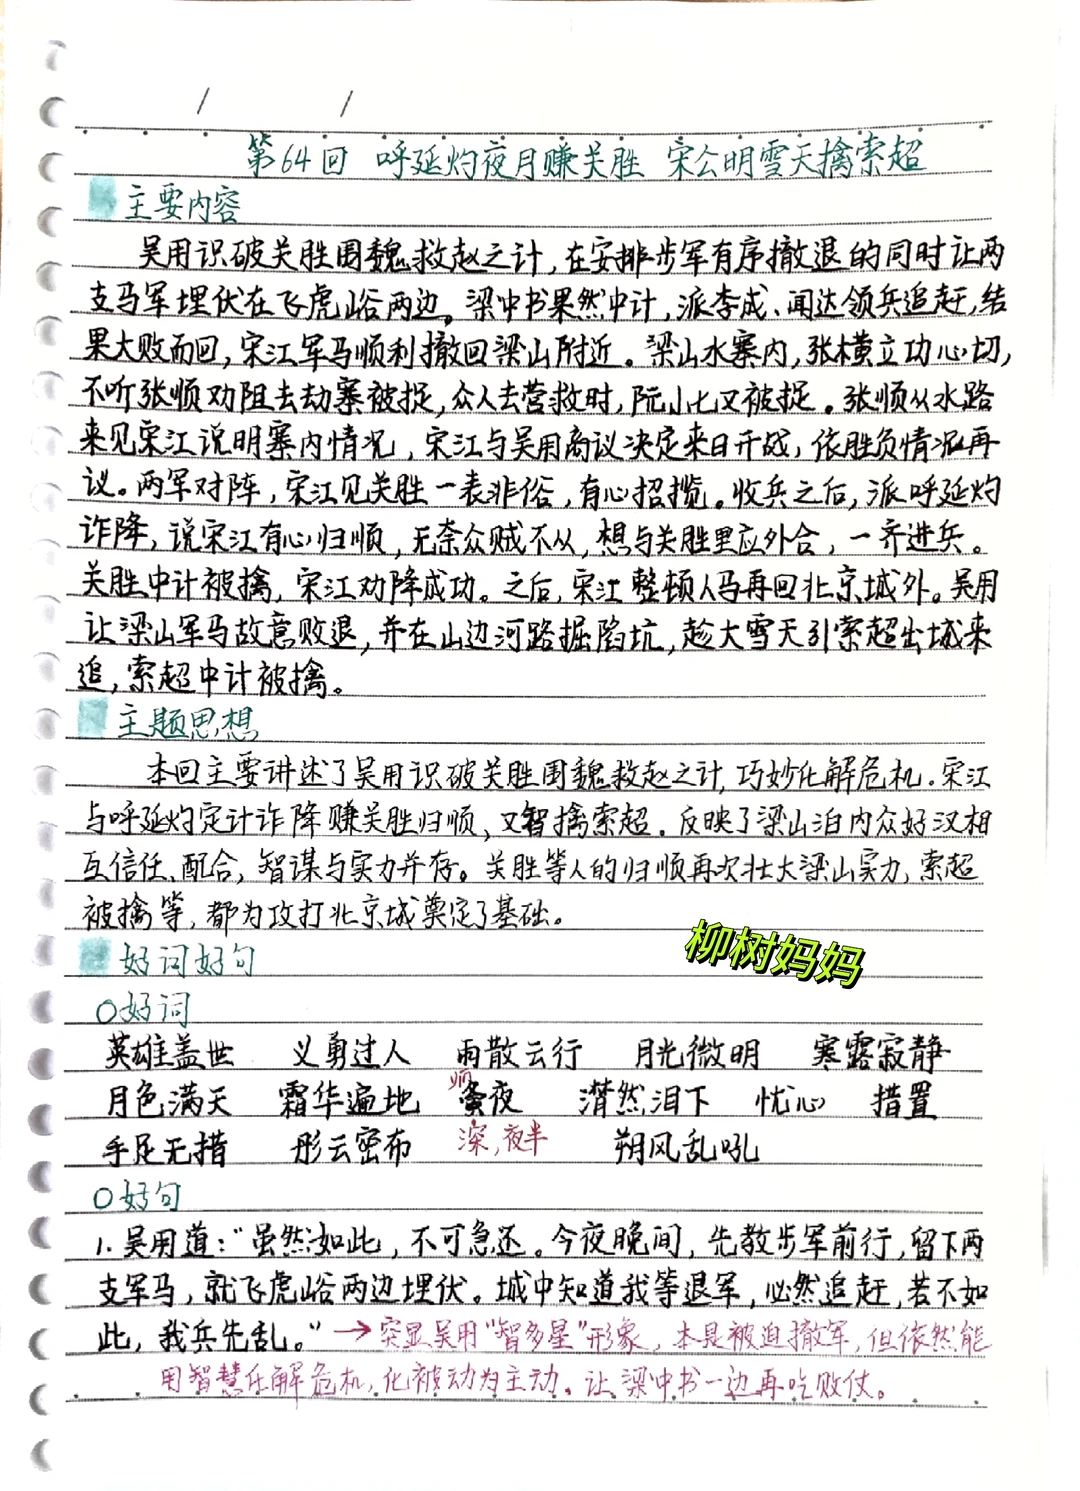 第64回 呼延灼夜月赚关胜 宋公明雪天擒索超
主要内容
吴用识破关胜围魏救赵之计,在安排步军有序撤退的同时让两
支马军埋伏在飞虎峪两边。梁中书果然中计,派李成、闻达领兵追赶,结
果大败而回,宋江军马顺利撤回梁山附近。梁山水寨内,张横立功心切,
不听张顺劝阻去劫寨被捉,众人去营救时,阮小七又被捉。张顺从水路
来见宋江说明寨内情况,宋江与吴用商议决定来日开战,依胜负情况再
议。两军对阵,宋江见关胜一表非俗,有心招揽。收兵之后,派呼延灼
诈降,说宋江有心归顺,无奈众贼不从,想与关胜里应外合,一齐进兵。
关胜中计被擒,宋江劝降成功。之后,宋江整顿人马再回北京城外。吴用
让梁山军马故意败退,并在山边河路掘陷坑,趁大雪天引索超出城来
追,索超中计被擒。
主题思想
本回主要讲述了吴用识破关胜围魏救赵之计,巧妙化解危机.宋江
与呼延灼定计诈降赚关胜归顺,又智擒索超.反映了梁山泊内众好汉相
互信任、配合,智谋与实力并存。关胜等人的归顺再次壮大梁山实力,索超
被擒等,都为攻打北京城奠定了基础。
柳树妈妈
好词好句
○好词
英雄盖世 义勇过人 雨散云行 月光微明 寒露寂静
月色满天 霜华遍地 蚤夜 潸然泪下 忧心 措置
手足无措 彤云密布 深,夜半 朔风乱吼
○好句
1.吴用道:“虽然如此,不可急还。今夜晚间,先教步军前行,留下两
支军马,就飞虎峪两边埋伏。城中知道我等退军,必然追赶,若不如
此,我兵先乱。”→突显吴用“智多星”形象,本是被迫撤军,但依然能
用智慧化解危机,化被动为主动。让梁中书一边再吃败仗。